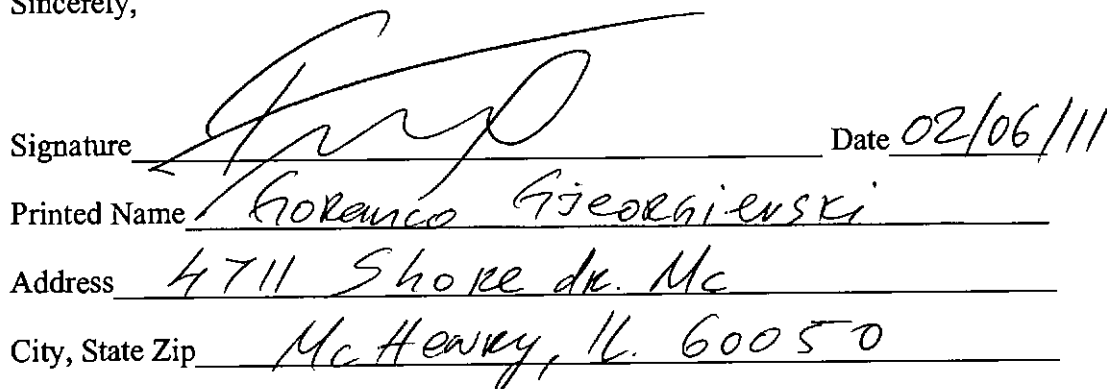 Sincerely,
Signature Date 02/06/11
Printed Name Goranco Gjeorgievski
Address 4711 Shore dr. Mc
City, State Zip Mc Henry, IL. 60050